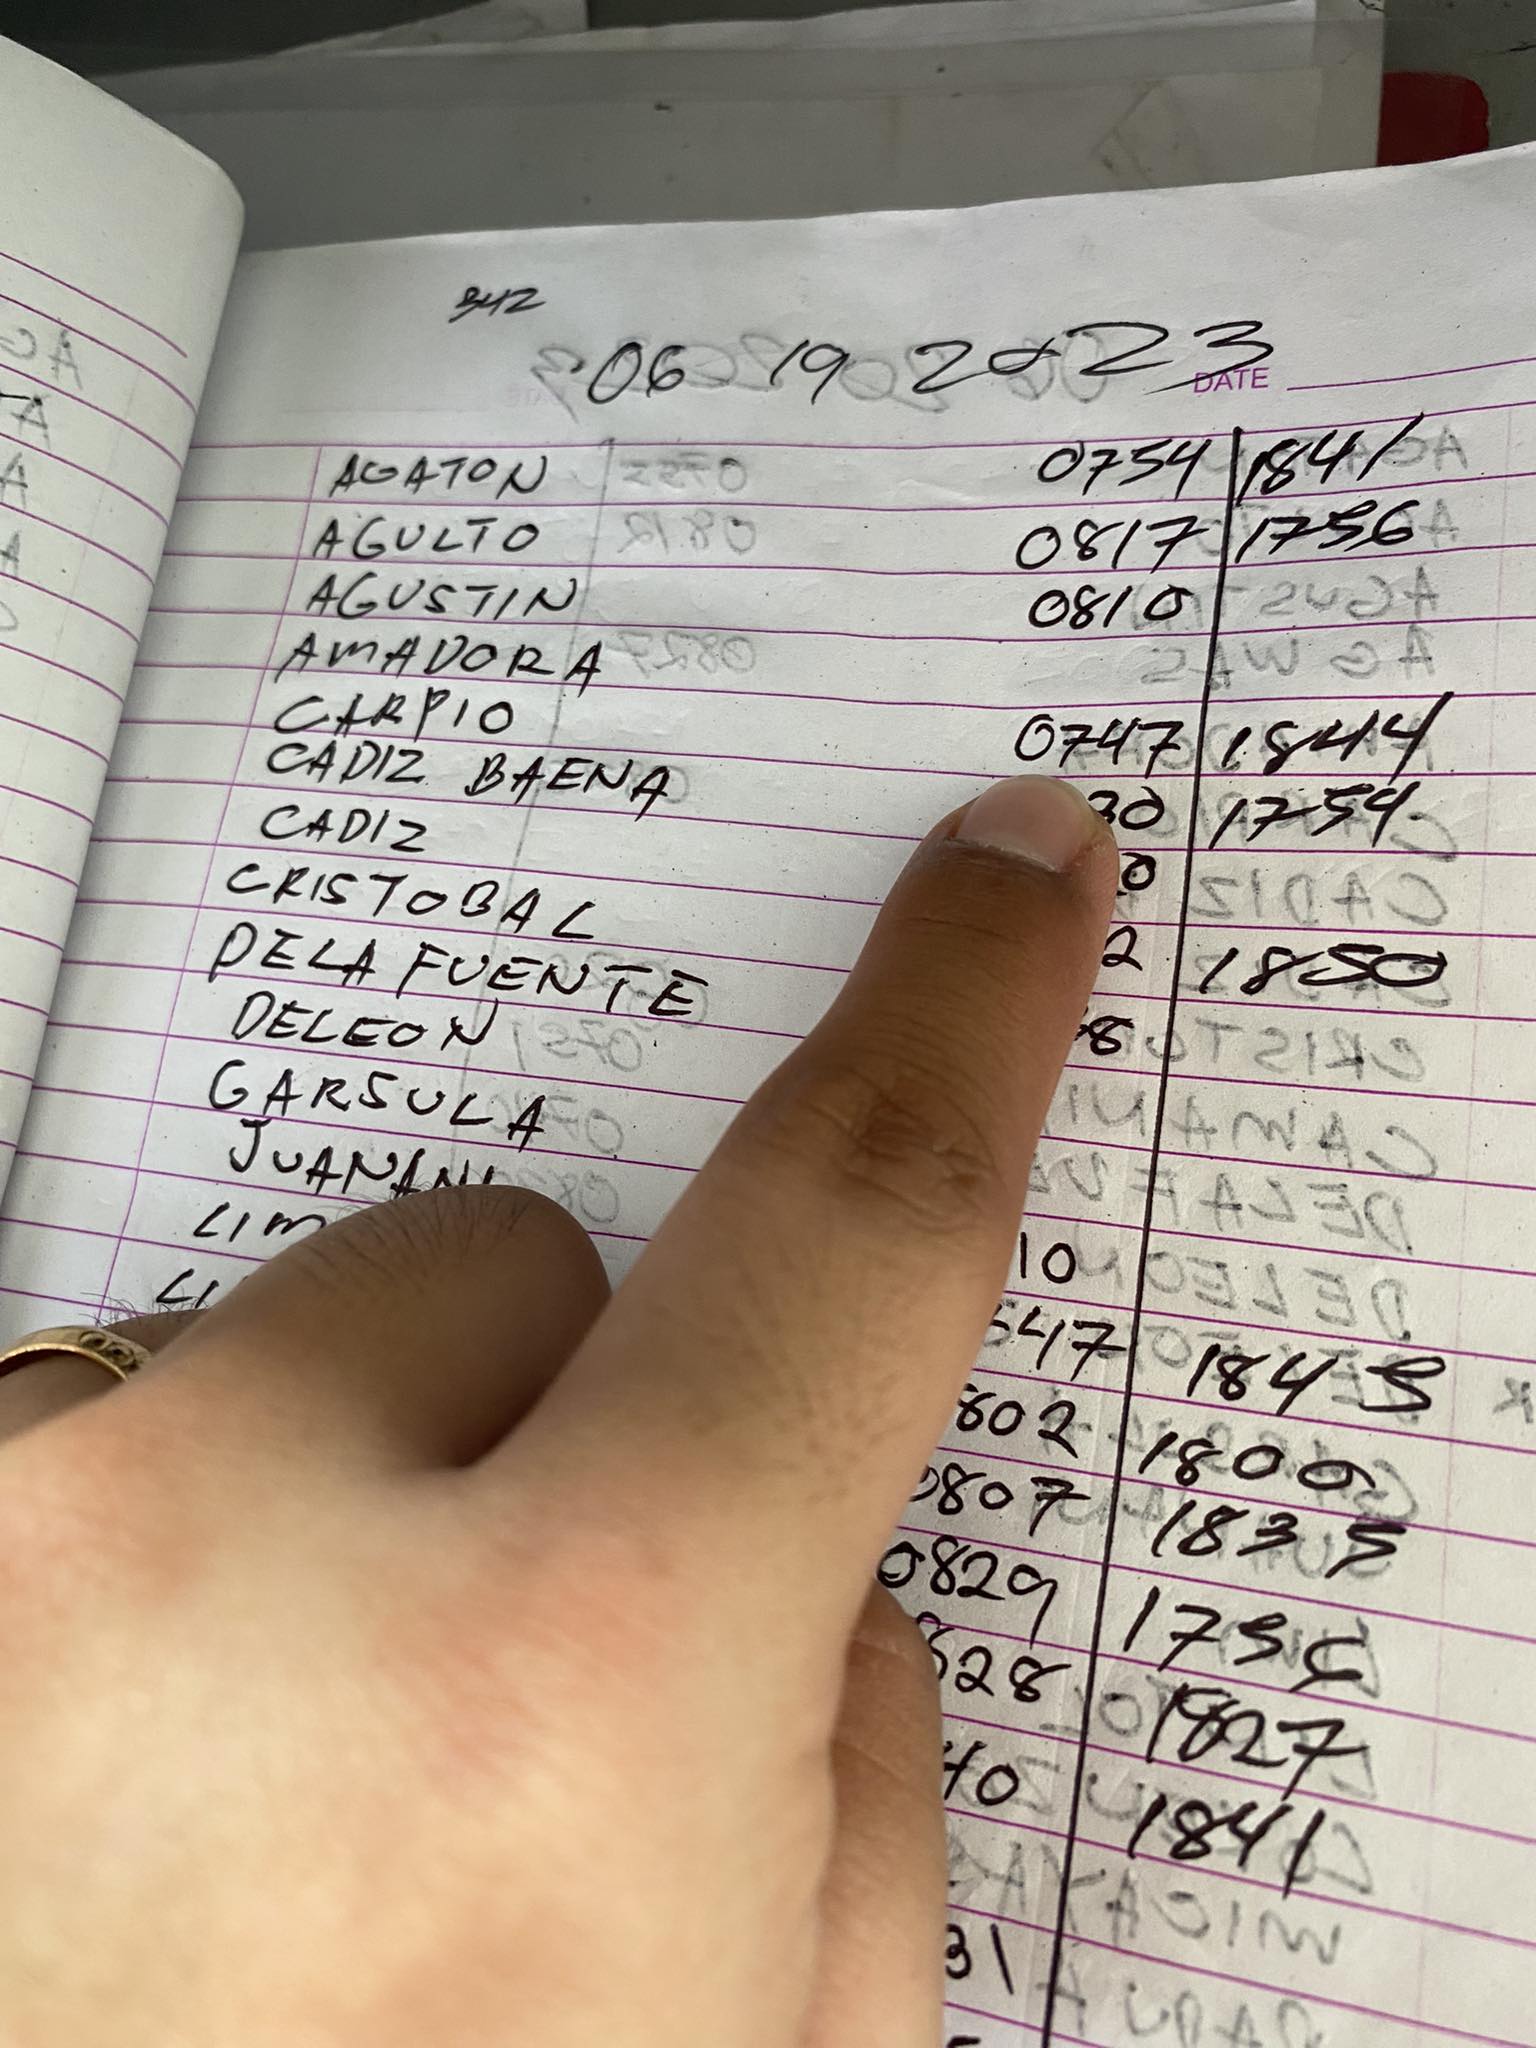 342
06 19 2023
DATE
AGATON 0754 1841
AGULTO 0817 1756
AGUSTIN 0810
AMADORA
CARPIO 0747 1844
CADIZ BAENA 30 1754
CADIZ 0
CRISTOBAL 2 1850
DELA FUENTE 8
DELEON
GARSULA
10
47 1845
802 1800
0807 1835
0829 175
828 1827
40 1841
31